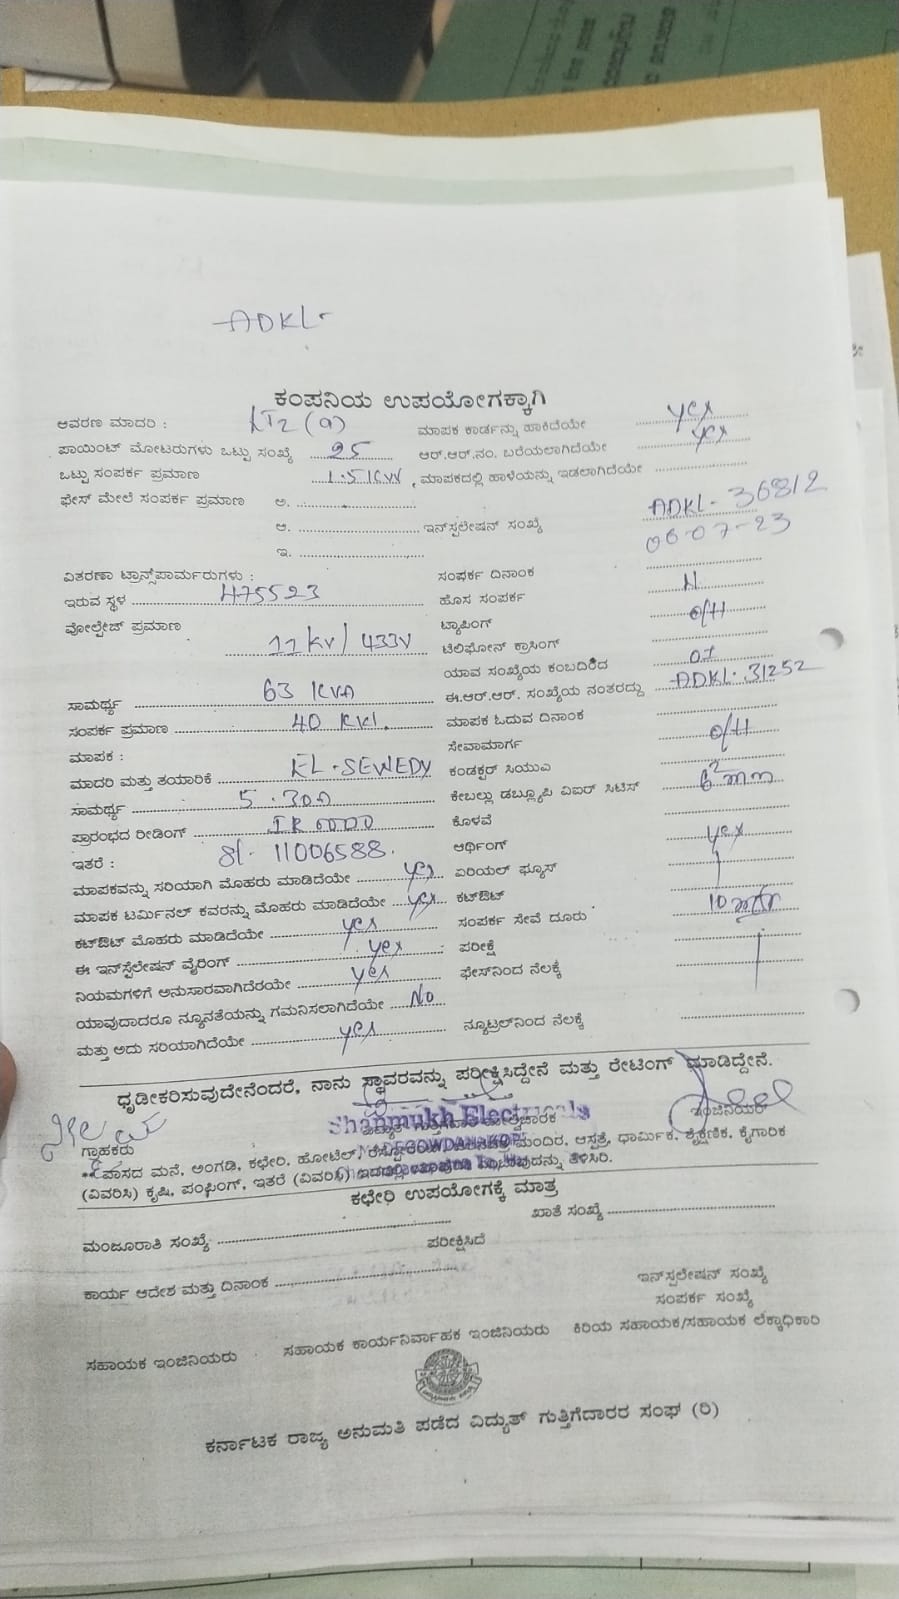 ADKL-
ಕಂಪನಿಯ ಉಪಯೋಗಕ್ಕಾಗಿ
ಆವರಣ ಮಾದರಿ : LT2 (a) ಮಾಪಕ ಕಾರ್ಡನ್ನು ಹಾಕಿದೆಯೇ yes
ಪಾಯಿಂಟ್ ಮೋಟರುಗಳು ಒಟ್ಟು ಸಂಖ್ಯೆ 25 ಆರ್.ಆರ್.ನಂ. ಬರೆಯಲಾಗಿದೆಯೇ yes
ಒಟ್ಟು ಸಂಪರ್ಕ ಪ್ರಮಾಣ 1.5 KW, ಮಾಪಕದಲ್ಲಿ ಹಾಳೆಯನ್ನು ಇಡಲಾಗಿದೆಯೇ
ಫೇಸ್ ಮೇಲೆ ಸಂಪರ್ಕ ಪ್ರಮಾಣ ಅ.
ಆ. ಇನ್‌ಸ್ಪಲೇಷನ್ ಸಂಖ್ಯೆ ADKL-36812
ಇ. 06-07-23
ವಿತರಣಾ ಟ್ರಾನ್ಸ್‌ಪಾರ್ಮರುಗಳು : ಸಂಪರ್ಕ ದಿನಾಂಕ
ಇರುವ ಸ್ಥಳ 475523 ಹೊಸ ಸಂಪರ್ಕ N
ವೋಲ್ಟೇಜ್ ಪ್ರಮಾಣ ಟ್ಯಾಪಿಂಗ್ O/H
11 KV/ 433V ಟೆಲಿಫೋನ್ ಕ್ರಾಸಿಂಗ್
ಯಾವ ಸಂಖ್ಯೆಯ ಕಂಬದಿಂದ 01
ಸಾಮರ್ಥ್ಯ 63 KVA ಈ.ಆರ್.ಆರ್. ಸಂಖ್ಯೆಯ ನಂತರದ್ದು ADKL-31252
ಸಂಪರ್ಕ ಪ್ರಮಾಣ 40 ಮಾಪಕ ಓದುವ ದಿನಾಂಕ
ಮಾಪಕ : ಸೇವಾಮಾರ್ಗ O/H
ಮಾದರಿ ಮತ್ತು ತಯಾರಿಕೆ EL-SEWEDY ಕಂಡಕ್ಟರ್ ಸಿಯುಎ
ಸಾಮರ್ಥ್ಯ 5-30A ಕೇಬಲ್ಲು ಡಬ್ಲ್ಯೂಪಿ ವಿಐರ್ ಸಿಟಿಸ್ 6mm²
ಪ್ರಾರಂಭದ ರೀಡಿಂಗ್ IR 0000 ಕೊಳವೆ
ಇತರೆ : Sl- 11006588. ಆರ್ಥಿಂಗ್ yes
ಮಾಪಕವನ್ನು ಸರಿಯಾಗಿ ಮೊಹರು ಮಾಡಿದೆಯೇ yes ಏರಿಯಲ್ ಫ್ಯೂಸ್
ಮಾಪಕ ಟರ್ಮಿನಲ್ ಕವರನ್ನು ಮೊಹರು ಮಾಡಿದೆಯೇ yes ಕಟ್‌ಔಟ್
ಕಟ್‌ಔಟ್ ಮೊಹರು ಮಾಡಿದೆಯೇ yes ಸಂಪರ್ಕ ಸೇವೆ ದೂರು 10
ಈ ಇನ್‌ಸ್ಪೆಲೇಷನ್ ವೈರಿಂಗ್ yes ಪರೀಕ್ಷೆ
ನಿಯಮಗಳಿಗೆ ಅನುಸಾರವಾಗಿದೆರಯೇ yes ಫೇಸ್‌ನಿಂದ ನೆಲಕ್ಕೆ
ಯಾವುದಾದರೂ ನ್ಯೂನತೆಯನ್ನು ಗಮನಿಸಲಾಗಿದೆಯೇ No
ಮತ್ತು ಅದು ಸರಿಯಾಗಿದೆಯೇ yes ನ್ಯೂಟ್ರಲ್‌ನಿಂದ ನೆಲಕ್ಕೆ
ಧೃಡೀಕರಿಸುವುದೇನೆಂದರೆ, ನಾನು ಸ್ಥಾವರವನ್ನು ಪರೀಕ್ಷಿಸಿದ್ದೇನೆ ಮತ್ತು ರೇಟಿಂಗ್ ಮಾಡಿದ್ದೇನೆ.
Shanmukh Electricals
ಗ್ರಾಹಕರು ಇಂಜಿನಿಯರ್
MADEGOWDANAKOPP
**ವಾಸದ ಮನೆ, ಅಂಗಡಿ, ಕಛೇರಿ, ಹೋಟೆಲ್, ಮಂದಿರ, ಆಸ್ಪತ್ರೆ, ಧಾರ್ಮಿಕ, ಶೈಕ್ಷಣಿಕ, ಕೈಗಾರಿಕ
(ವಿವರಿಸಿ) ಕೃಷಿ, ಪಂಫಿಂಗ್, ಇತರೆ (ವಿವರಿಸಿ) ತಿಳಿಸಿರಿ.
ಕಛೇರಿ ಉಪಯೋಗಕ್ಕೆ ಮಾತ್ರ
ಮಂಜೂರಾತಿ ಸಂಖ್ಯೆ ಖಾತೆ ಸಂಖ್ಯೆ
ಪರೀಕ್ಷಿಸಿದೆ
ಕಾರ್ಯ ಆದೇಶ ಮತ್ತು ದಿನಾಂಕ
ಇನ್‌ಸ್ಪಲೇಷನ್ ಸಂಖ್ಯೆ
ಸಂಪರ್ಕ ಸಂಖ್ಯೆ
ಸಹಾಯಕ ಇಂಜಿನಿಯರು ಸಹಾಯಕ ಕಾರ್ಯನಿರ್ವಾಹಕ ಇಂಜಿನಿಯರು ಕಿರಿಯ ಸಹಾಯಕ/ಸಹಾಯಕ ಲೆಕ್ಕಾಧಿಕಾರಿ
ಕರ್ನಾಟಕ ರಾಜ್ಯ ಅನುಮತಿ ಪಡೆದ ವಿದ್ಯುತ್ ಗುತ್ತಿಗೆದಾರರ ಸಂಘ (ರಿ)